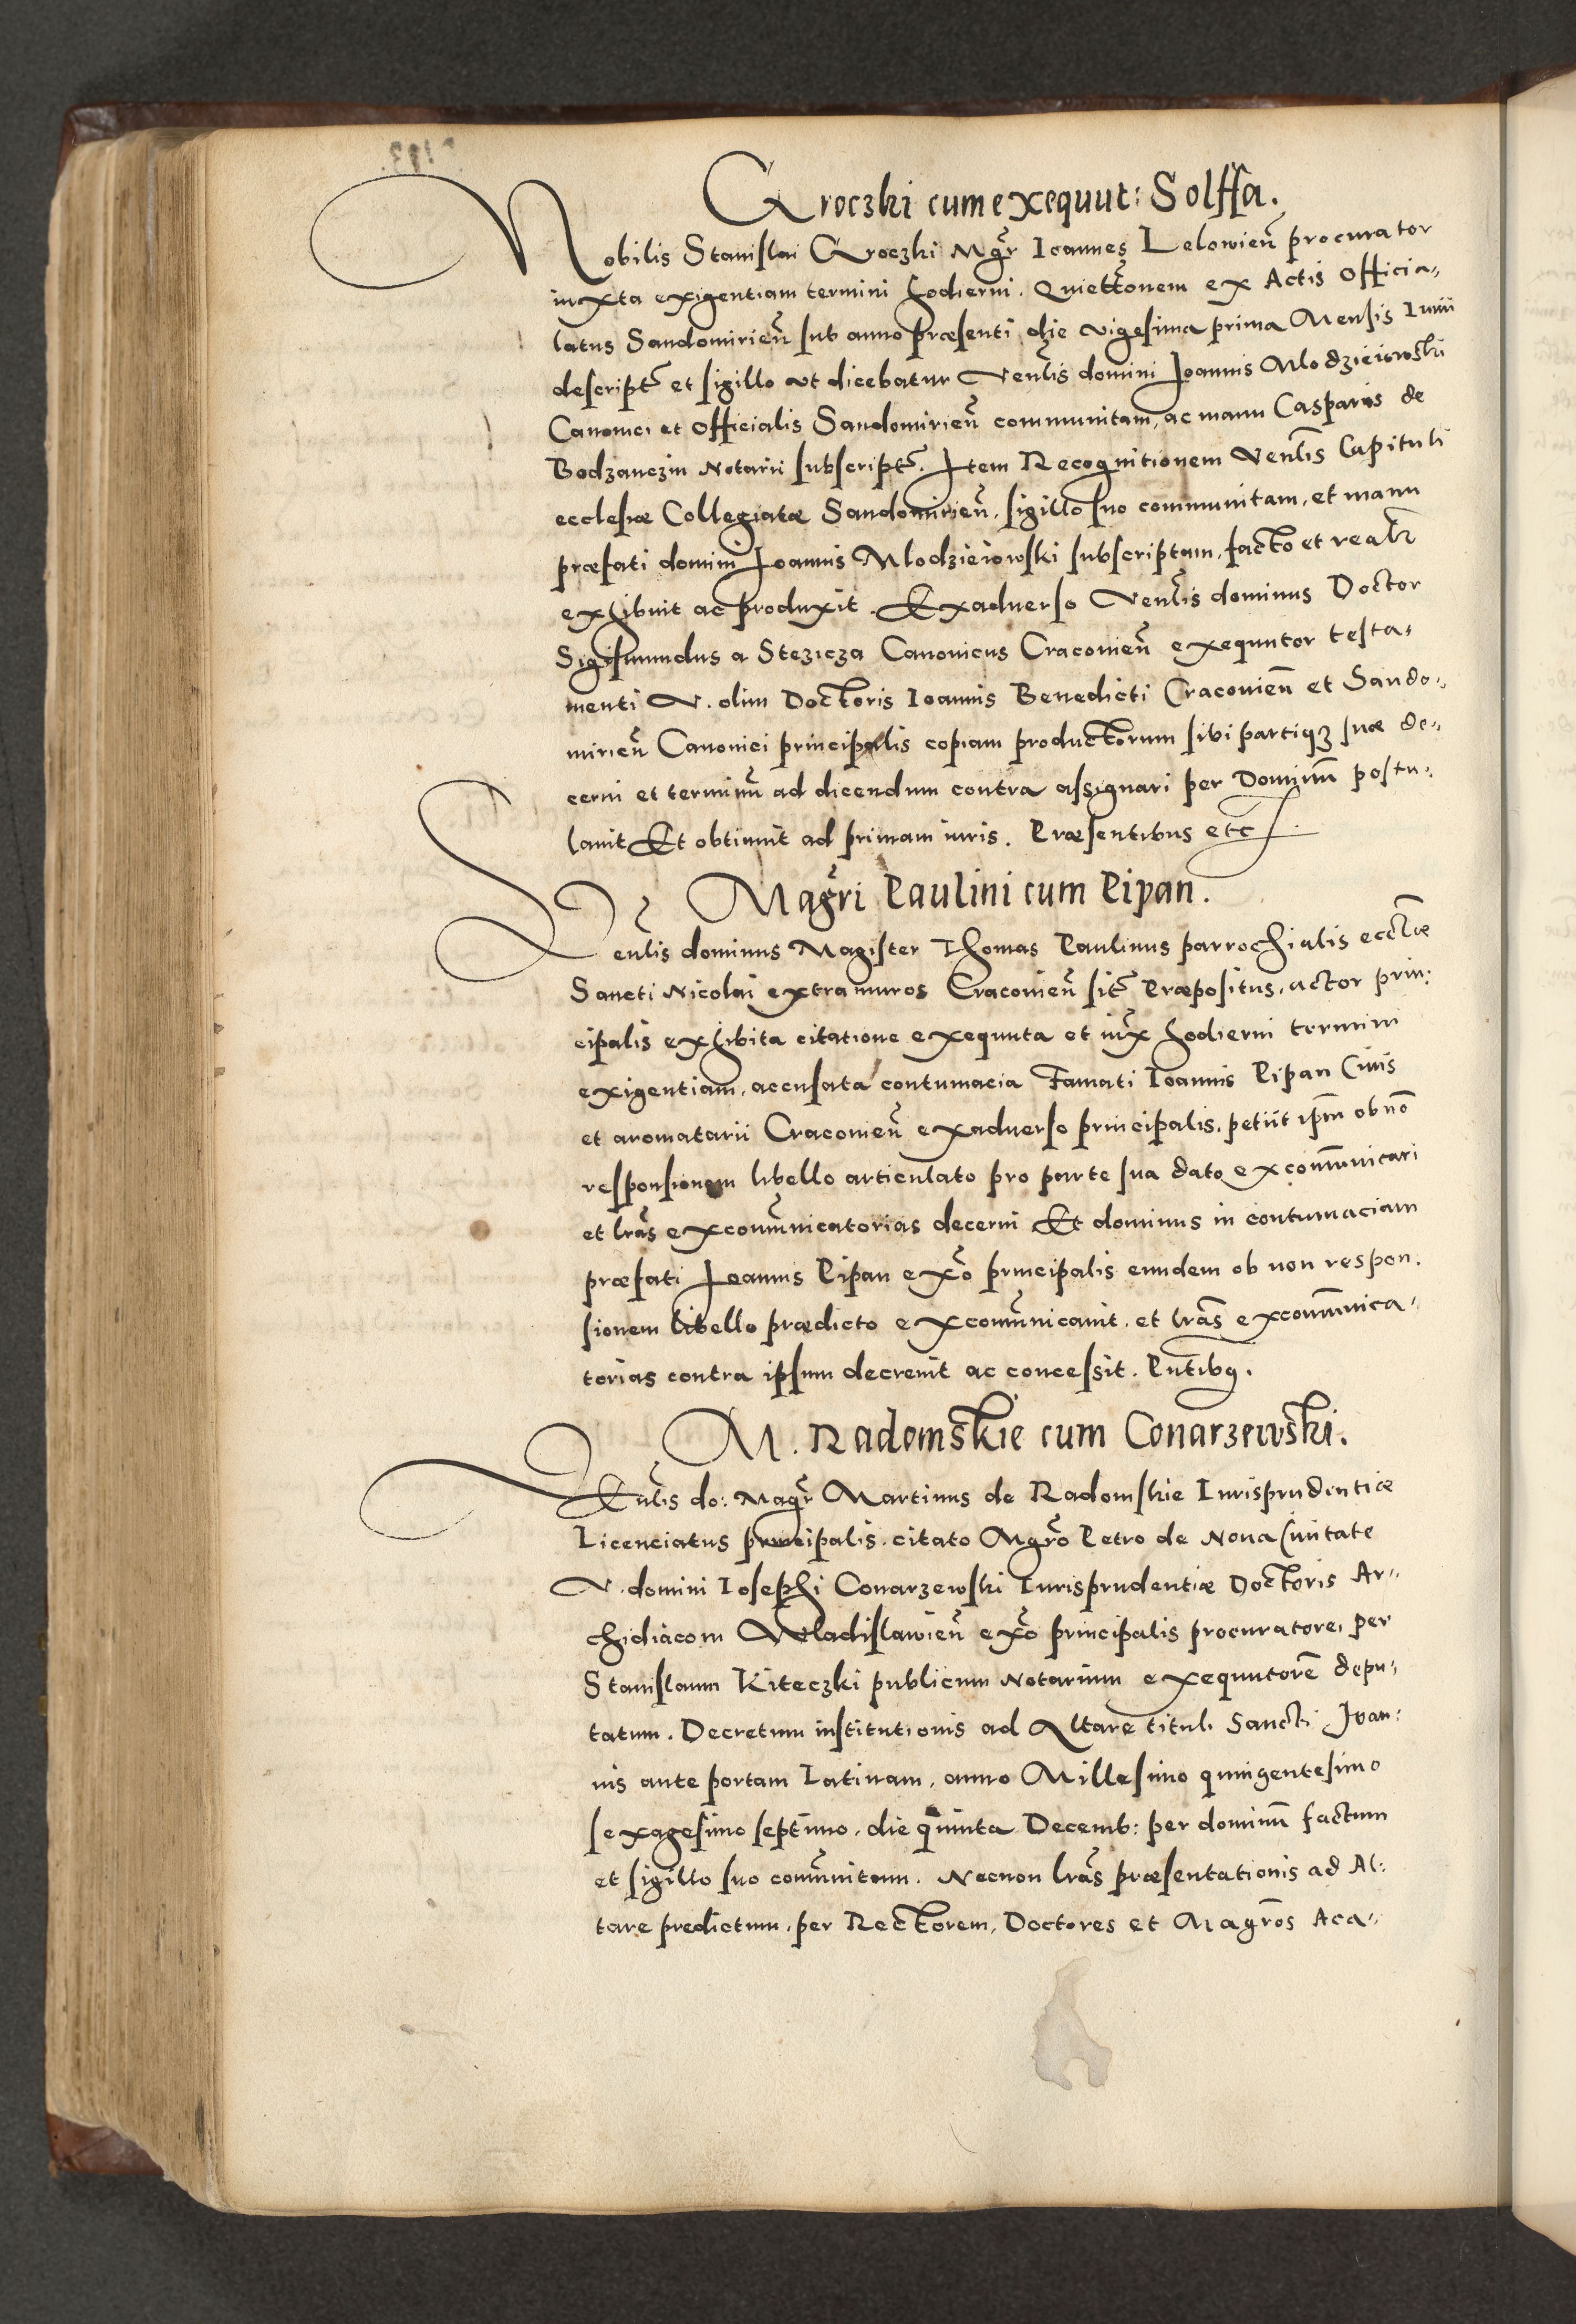 Groczki cum exequut: Solffa.
Nobilis Stanislai Groczki Mgr̃ Ioannes Lelowieñ procurator
iuxta exigentiam termini hodierni. Quiettõnem ex Actis Officia-
latus Sandomirieñ sub anno præsenti die vigesima prima Mensis Iunii
descript̃ et sigillo vt dicebatur Venẽlis domini Joannis Mlodzieiowski
Canonici et Officialis Sandomirieñ communitam, ac manu Casparis de
Bodzanczin Notarii subscript̃. Item Recognitionem Venẽlis Capituli
ecclesiæ Collegiatæ Sandomirieñ, sigillo suo communitam, et manu
præfati domini Joannis Mlodzieiowski subscriptam, facto et realr̃
exhibuit ac produxit. Exaduerso Venẽlis dominus Doctor
Sigismundus a Stezicza Canonicus Cracouieñ exequutor testa-
menti V. olim Doctoris Ioannis Benedicti Cracouieñ et Sando-
mirieñ Canonici principalis copiam productorum sibi partiqꝫ suæ de-
cerni et terminũ ad dicendum contra assignari per Dominũ postu-
lauit Et obtinuit ad primam iuris. Præsentibus etc.
Magr̃i Paulini cum Pipan.
Venẽlis dominus Magister Thomas Paulinus parrochialis ecctiæ
Sancti Nicolai extra muros Cracouieñ sit̃ Præpositus, actor prin:
cipalis exhibita citatione exequuta et iux̃ hodierni termini
exigentiam, accusata contumacia Famati Ioannis Pipan Ciuis
et aromatarii Cracouieñ exaduerso principalis, petiit ip̃m ob nõ
responsionem libello articulato pro parte sua dato excom̃unicari
et lr̃as excom̃unicatorias decerni Et dominus in contumaciam
præfati Joannis Pipan exõ principalis eundem ob non respon.
sionem libello prædicto excom̃unicauit, et lr̃as excom̃unica-
torias contra ipsum decreuit ac concessit. Pñtibꝯ.
M. Radomskie cum Conarzewski.
Vẽnlis do: Magr̃ Martinus de Radomskie Iurisprudentiæ
Licenciatus principalis, citato Mgr̃o Petro de Noua Ciuitate
V. domini Iosephi Conarzewski Iurisprudentiæ Doctoris Ar-
chidiaconi Wladislawieñ exõ principalis procuratore, per
Stanislaum Kiteczki publicum Notarium exequutorẽ depu-
tatum. Decretum institutionis ad Altare tituli Sancti Joan:
nis ante portam Latinam, anno Millesimo quingentesimo
sexagesimo septimo, die quinta Decemb: per dominũ factum
et sigillo suo com̃unitum. Necnon lr̃as præsentationis ad Al:
tare predictum, per Rectorem, Doctores et Magr̃os Aca-